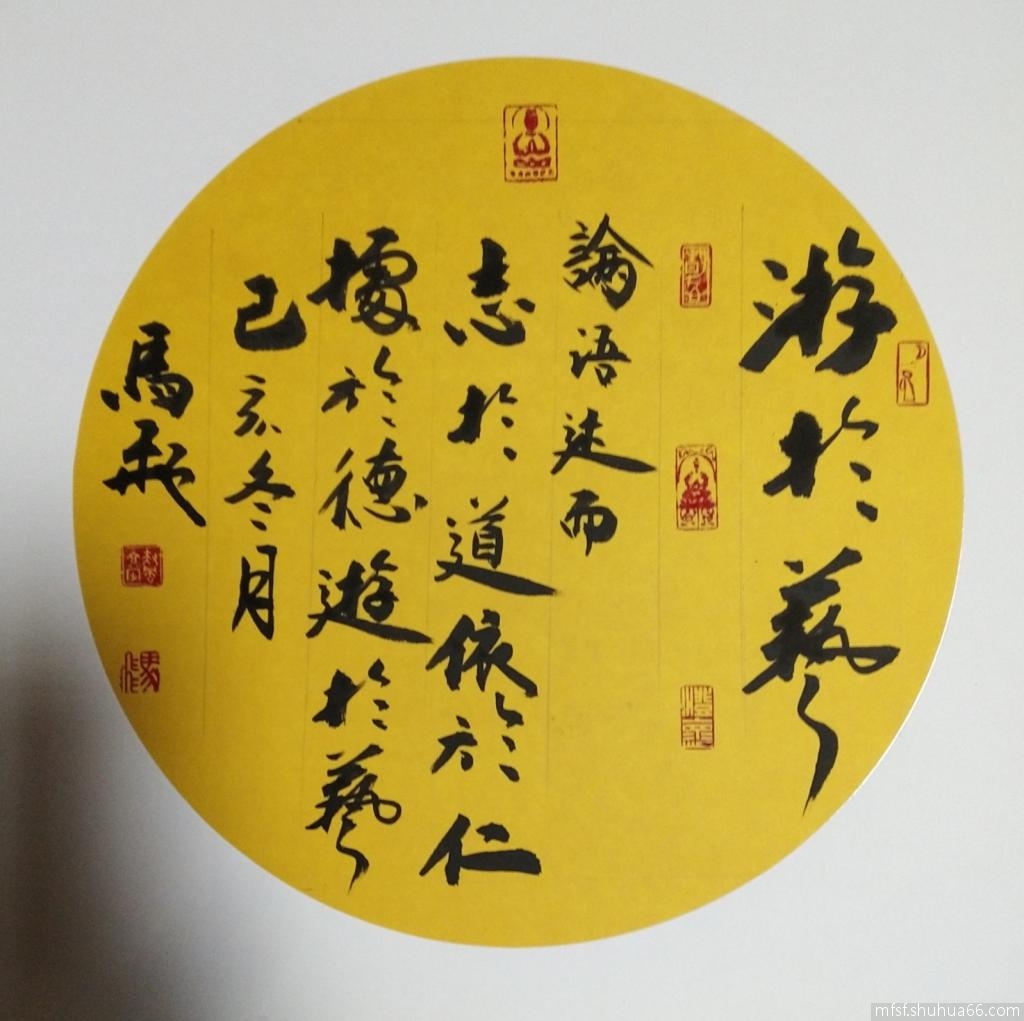 游於藝
論語述而
志於道依於仁
據於德遊於藝
己亥冬月
馬
mfsf.shuhua66.com